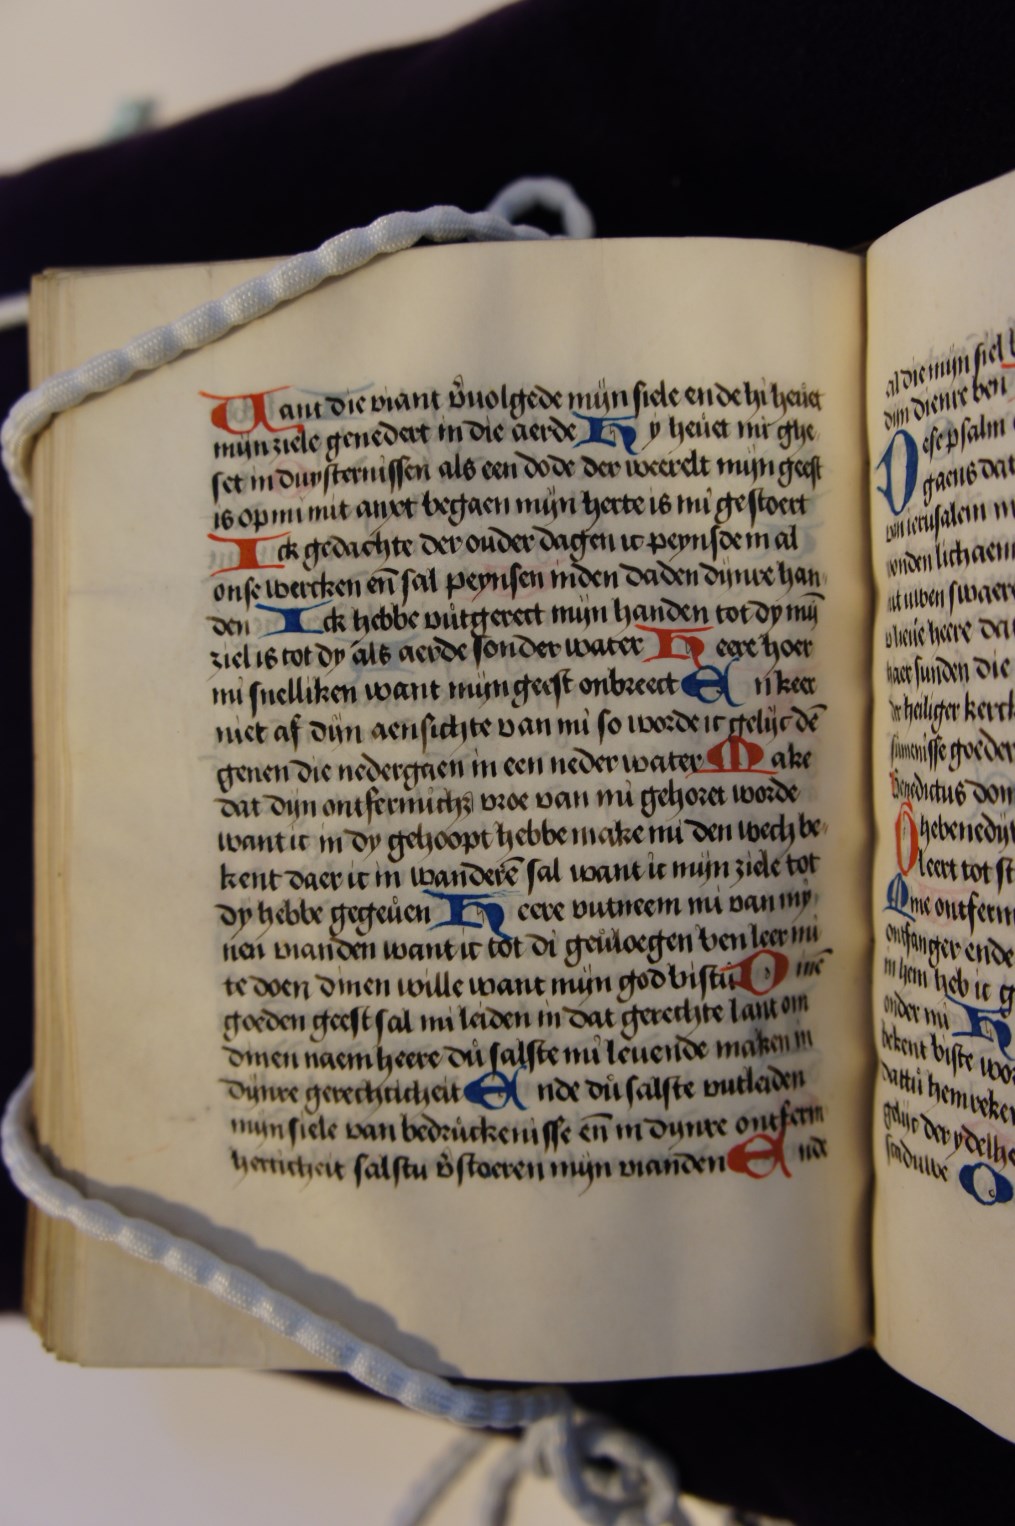 Want die viant v̓uolgede mijn siele ende hi heuet
mijn ziele genedert in die aerde Hy heuet mi ghe
set in duysternissen als een dode der weerelt mijn geest
is op mi mit anxt begaen mijn herte is mi gestoert
Ick gedachte der ouder dagen ic peynsde in al
onse wercken en̄ sal peynsen inden daden dijnre han
den Ick hebbe uutgerect mijn handen tot dy mij̄
ziel is tot dy als aerde sonder water Heere hoer
mi snelliken want mijn geest onbreect En keer
niet af dijn aensichte van mi so worde ic gelijc dē
genen die nedergaen in een neder water Make
dat dijn ontfermich vroe van mi gehoret worde
want ic in dy gehoopt hebbe make mi den wech be
kent daer ic in wanderē sal want ic mijn ziele tot
dy hebbe gegeuen Heere vutneem mi van my
nen vianden want ic tot di geuloegen ben leer mi
te doen dinen wille want mijn god bistu Dinē
goeden geest sal mi leiden in dat gerechte lant om
dinen naem heere du salste mi leuende maken in
dijnre gerechticheit Ende du salste vutleiden
mijn siele van bedruckenisse en̄ in dijnre ontferm
herticheit salstu v̓stoeren mijn vianden Ende
al die mijn siel
dijn dienre ben
Dese psalm
gaeus dat
van ierusalem
onden lichaem
swaer
heere dat
sunden die
heiliger kerck
goeder
Benedictus dom
Ghebenedijt
leert tot st
ontferm
ontfanger ende
in hem heb ic g
onder mi H
bekent biste wor
dattu hem reke
gelijc der ydelhe
O